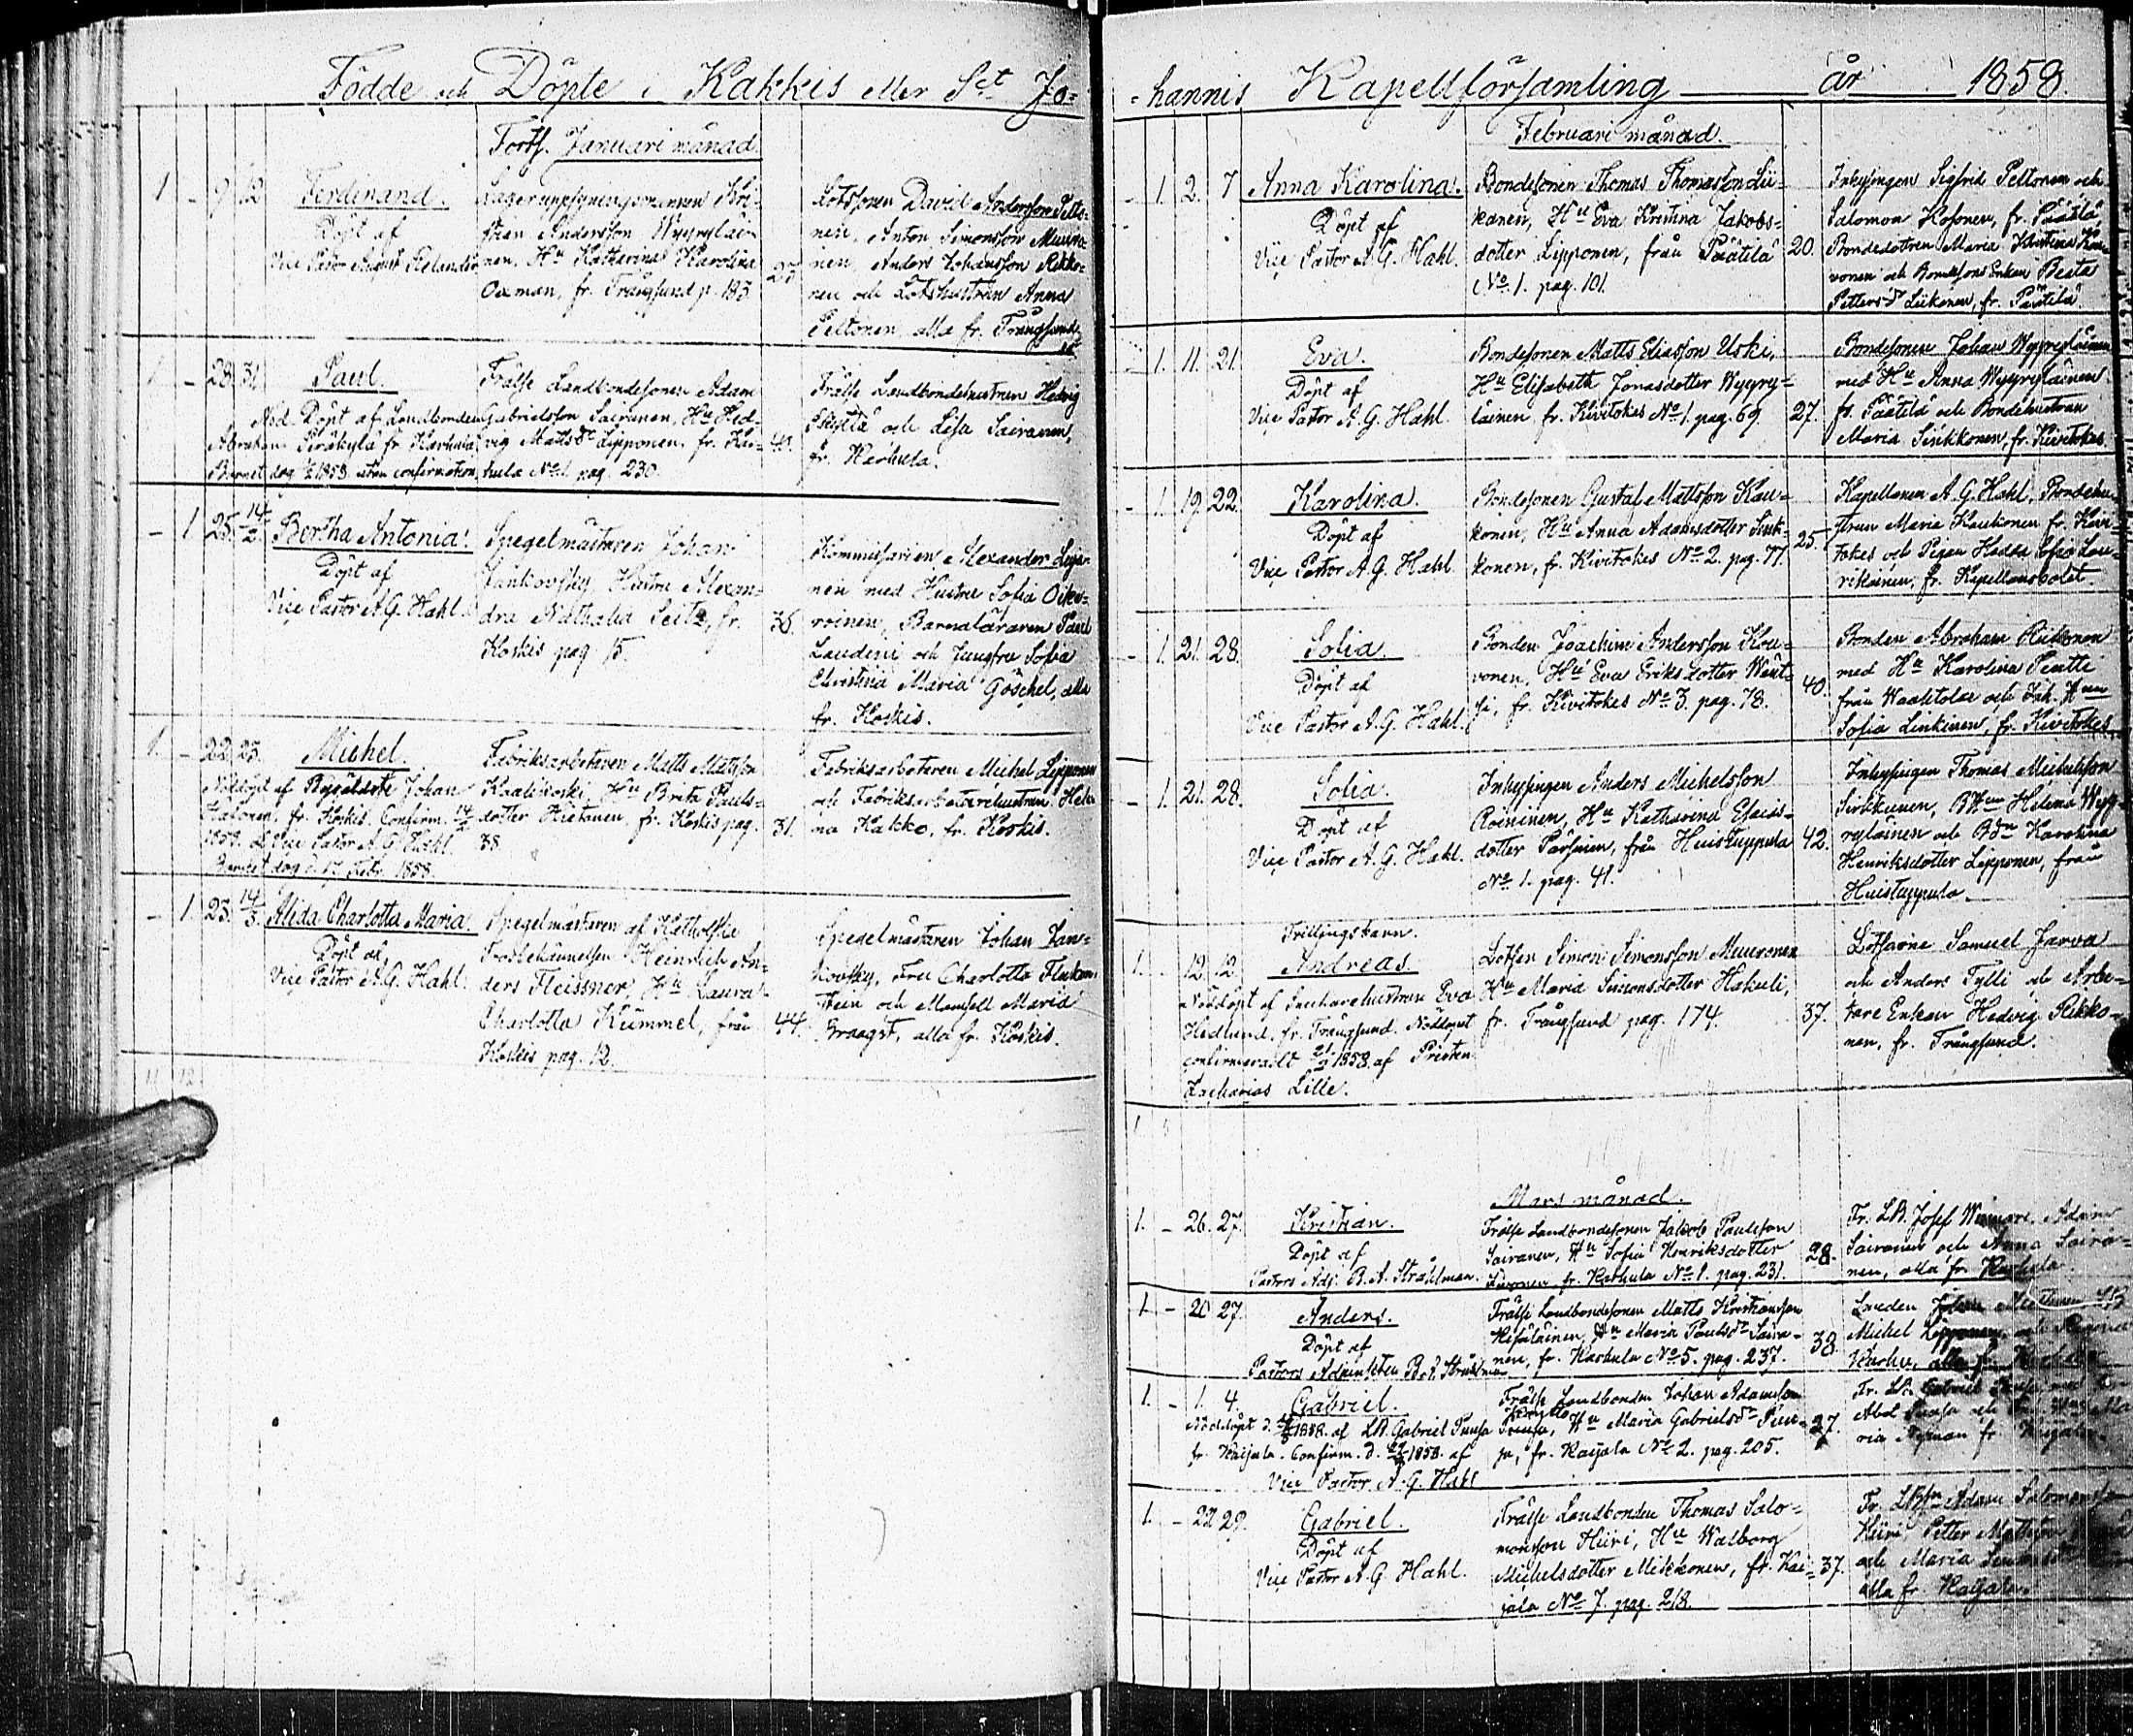 Födde och Döpte i Kakkis eller Sct Jo=
Forts. Januari månad.
1 - 9. 12. Ferdinand.
Döpt af
Vice Pastor August Relander
Lageruppsyningsmannen Kri-
stian Andersson Wyyryläi-
nen, Hu Katharina Karolina
Oxman, fr. Trångsund p. 183.
25.
Lotssonen David Andersson Pelto-
nen, Anton Simonsson Muuro-
nen, Anders Johansson Rikko-
nen och Lotshustrun Anna
Peltonen, alla fr. Trångsund.
1. - 28. 31. Paul.
Nöd. Döpt af Landbonden
Abraham fr. Karhula
Barnet dog 1858 utan confirmation
Frälse Landbondesonen Adam
Gabrielsson Sairanen, Hu Hed-
vig Matts dr Lipponen, fr. Kar-
hula No 1. pag. 230.
40.
Frälse Landbondehustrun Hedvig
och Lisa Sairanen,
fr. Karhula.
- 1 25. 14/2. Bertha Antonia.
Döpt af
Vice Pastor A.G. Hahl.
Spegelmästaren Johan
Jankovsky, Hustru Alexan-
dra Nathalia Seitz, fr.
Koskis pag 15.
36.
Kommissarien Alexander
nen med Hustru Sofia Oike-
roinen, Barnaläraren Paul
Landeni och Jungfru Sofia
Christina Maria Göschel, alla
fr. Koskis.
1. - 22. 23. Michel.
Nöddöpt af Byålderste Johan
Halonen, fr. Koskis. Confirm. 14/2
1858. af Vice Pastor A.G. Hahl.
Barnet dog d. 17. Febr. 1858.
Fabriksarbetaren Matts Mattsson
Kaalikoski, Hu Brita Pauls-
dotter Hietanen, fr. Koskis pag.
38.
31.
Fabriksarbetaren Michel Lipponen
och Fabriksarbetarehustrun Hele-
na Kakko, fr. Koskis.
- 1. 23. 14/3. Alida Charlotta Maria.
Döpt af,
Vice Pastor A.G. Hahl.
Spegelmästaren af Katholska
Trosbekännelsen Heinrich An-
ders Fleissner, Hu Laura
Charlotta Kümmel, från
Koskis pag. 12.
44.
Spegelmästaren Johan Jan-
kovsky, Fru Charlotta
och Mamsell Maria
alla fr. Koskis.
11 12
=hannis Kapellförsamling år 1858.
Februari månad.
- 1. 2. 7 Anna Karolina.
Döpt af
Vice Pastor A.G. Hahl.
Bondesonen Thomas Thomasson Lii-
kanen, Hu Eva Kristina Jakobs-
dotter Lipponen, från Päätilä
No. 1. pag. 101.
20.
Inhysingen Sigfrid Peltonen och
Salomon Kosonen, fr. Päätilä
Bondedottren Maria Kristina
och Bondesons Enkan Beata
Petters dr Liikanen, fr. Päätilä.
- 1. 11. 21. Eva.
Döpt af
Vice Pastor A.G. Hahl.
Bondesonen Matts Eliasson Uski,
Hu Elisabeth Jonasdotter Wyyry-
läinen, fr. Kiwitokes No. 1. pag. 69.
27.
Bondesonen Johan Wyyryläinen
med Hu Anna Wyyryläinen
fr. Päätilä och Bondehustrun
Maria Sinkkonen, fr. Kiwitokes
- 1. 19. 22. Karolina.
Döpt af
Vice Pastor A.G. Hahl.
Bondesonen Gustaf Mattsson Kau-
konen, Hu Anna Adamsdotter Sink-
konen, fr. Kivitokes No. 2. pag. 77.
25.
Kapellanen A.G. Hahl, Bondehu-
strun Maria Kaukonen fr. Kivi-
tokes och Pigan Hedda Sofia Lau-
rikainen, fr. Kapellansbolet.
- 1. 21. 28. Sofia.
Döpt af
Vice Pastor A.G. Hahl.
Bonden Joachim Andersson Kou-
vonen, Hu Eva Eriksdotter Wänt-
si, fr. Kivitokes No. 3. pag. 78.
40.
Bonden Abraham Rikkonen
med Hu Karolina Pentti
från Waahtola och Inh. Hun
Sofia Liukinen, fr. Kivitokes
- 1. 21. 28. Sofia.
Döpt af
Vice Pastor A.G. Hahl.
Inhysingen Anders Michelsson
Roininen, Hu Katharina Esaias-
dotter Pärsinen, från Huistuppula
No. 1. pag. 41.
42.
Inhysingen Thomas Michelsson
Sirkkunen, BHun Helena Wyy-
ryläinen och Bdn Karolina
Henriksdotter Lipponen, från
Huistuppula.
Trillingsbarn.
1. - 12. 12 Andreas.
Nöddöpt af Eva
Hedlund, fr. Trångsund. Nöddopet
confirmeradt 21/2 1858. af Presten
Zacharias Lille.
Lotsen Simon Simonsson Muuronen
Hu Maria Simonsdotter Hakuli,
fr. Trångsund pag. 174.
37.
Lotsarne Samuel Jarva
och Anders Tylli och Arbe-
tare Enkan Hedvig Rikko-
nen, fr. Trångsund.
Mars månad.
1. - 26. 27. Kristian.
Döpt af
Pastors Adj. B.A. Stråhlman.
Frälse Landbondesonen Jakob Paulsson
Sairanen, Hu Sofia Henriksdotter
fr. Karhula No. 1. pag. 231.
28.
Fr. LB. Josef Adam
Sairanen och Anna Saira-
nen, alla fr. Karhula.
1. - 20 27. Anders.
Döpt af
Pastors B.A. Stråhlman
Frälse Landbondesonen Matts Kristiansson
Hu Maria Pauls dr Saira-
nen, fr. Karhula No. 5. pag. 237.
38.
Michel Lipponen, och
Karhu, alla fr. Karhula
1. - 1. 4. Gabriel.
Nöddöpt d. 1858. af LB. Gabriel Punsa
fr. Kaijala. Confirm. d. 1858. af
Vice Pastor A.G. Hahl
Frälse Landbonden Johan Adamsson
Hu Maria Gabriels dr
fr. Kaijala No. 2. pag. 205.
27.
Fr. LB. Gabriel Punsa med
Abel Punsa och Ma-
ria Nyman fr. Kaijala.
1. - 22 29. Gabriel.
Döpt af
Vice Pastor A.G. Hahl.
Frälse Landbonden Thomas Salo-
monsson Hiiri, Hu Walborg
Michelsdotter Mikkonen, fr. Kai-
jala No 7. pag. 218.
37.
Fr. Adam Salomonsson
Hiiri Petter Mattsson
och Maria
alla fr. Kaijala.